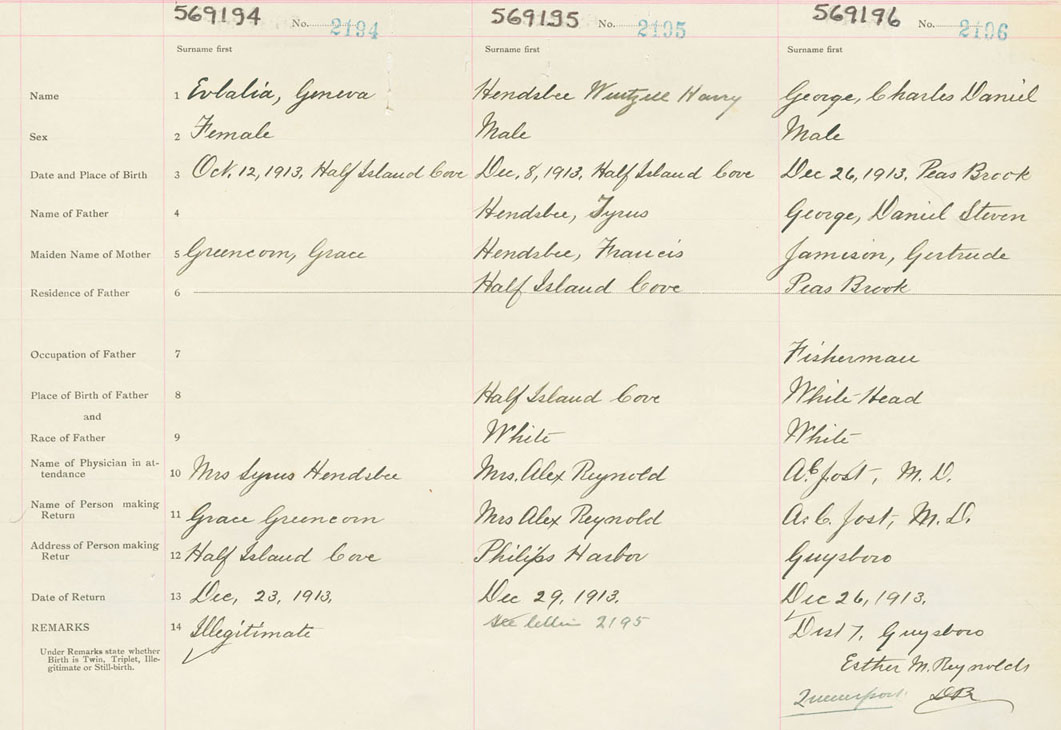 569194 No. 2194 569195 No. 2195 569196 No. 2196
Surname first Surname first Surname first
Name 1 Evlalia, Geneva Hendsbee Harry George, Charles Daniel
Sex 2 Female Male Male
Date and Place of Birth 3 Oct. 12, 1913, Half Island Cove Dec. 8, 1913, Half Island Cove Dec 26, 1913, Peas Brook
Name of Father 4 Hendsbee, Syrus George, Daniel Steven
Maiden Name of Mother 5 Greencorn, Grace Hendsbee, Francis Jamison, Gertrude
Residence of Father 6 Half Island Cove Peas Brook
Occupation of Father 7 Fisherman
Place of Birth of Father 8 Half Island Cove White Head
and
Race of Father 9 White White
Name of Physician in at-
tendance 10 Mrs Syrus Hendsbee Mrs. Alex Reynold A.C. Jost, M.D.
Name of Person making
Return 11 Grace Greencorn Mrs Alex Reynold A. C. Jost, M.D.
Address of Person making
Retur 12 Half Island Cove Philips Harbor Guysboro
Date of Return 13 Dec, 23, 1913, Dec 29, 1913. Dec 26, 1913.
REMARKS 14 Illegitimate see letter 2195 Dist 7, Guysboro
Under Remarks state whether
Birth is Twin, Triplet, Ille-
gitimate or Still-birth.
Esther M. Reynolds